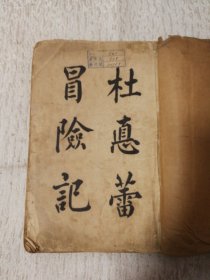 杜惪蕾
冒險記